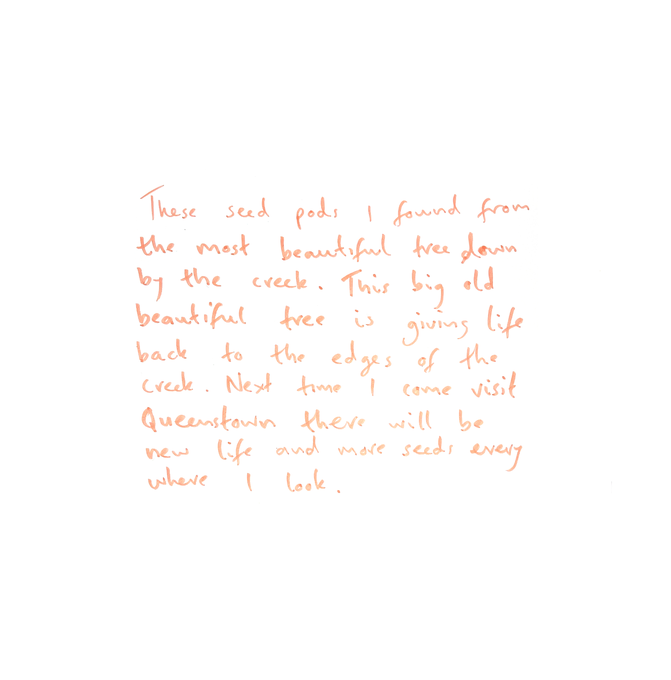 These seed pods I found from
the most beautiful tree down
by the creek. This big old
beautiful tree is giving life
back to the edges of the
creek. Next time I come visit
Queenstown there will be
new life and more seeds every
where I look.